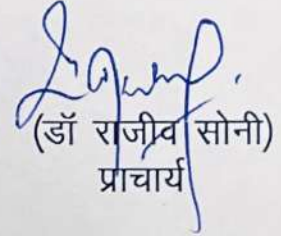 (डॉ राजीव सोनी)
प्राचार्य